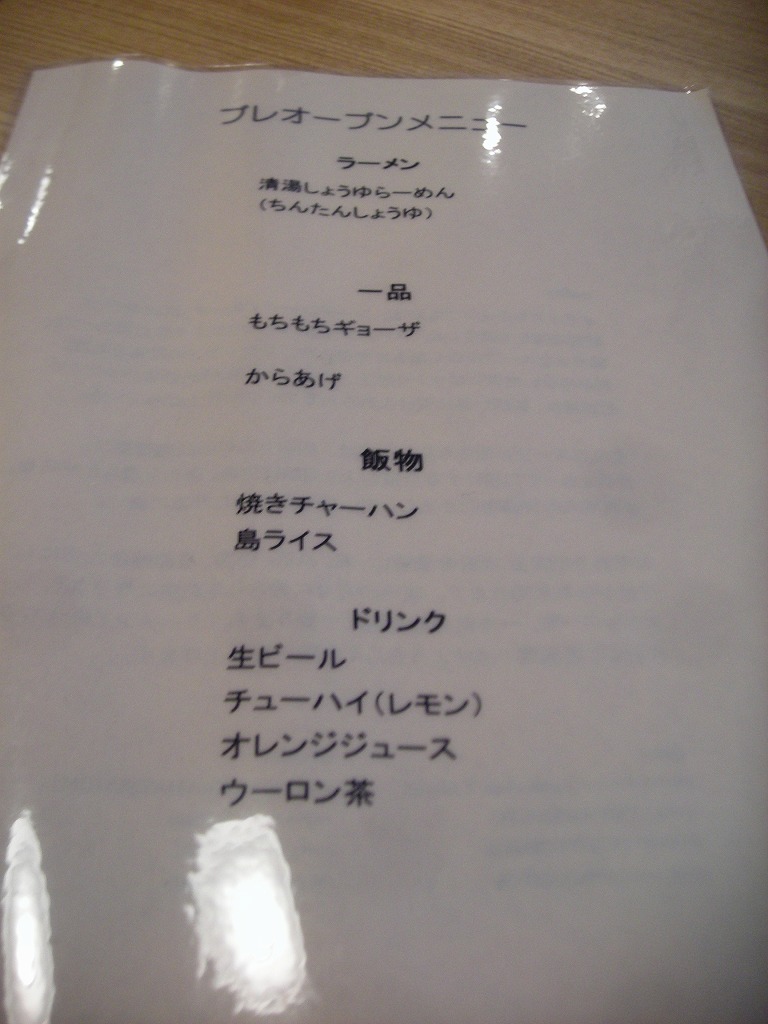 プレオープンメニュー
ラーメン
清湯しょうゆらーめん
(ちんたんしょうゆ)
一品
もちもちギョーザ
からあげ
飯物
焼きチャーハン
島ライス
ドリンク
生ビール
チューハイ(レモン)
オレンジジュース
ウーロン茶